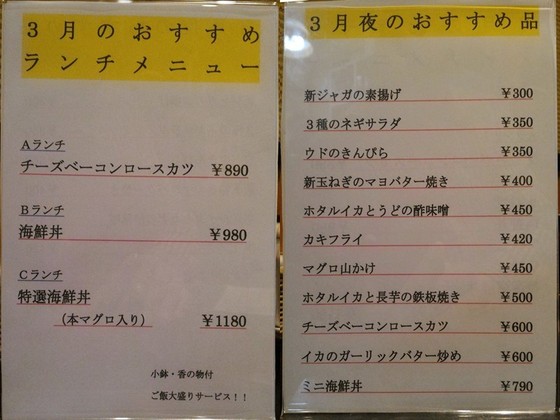 3月のおすすめ
ランチメニュー
Aランチ
チーズベーコンロースカツ ¥890
Bランチ
海鮮丼 ¥980
Cランチ
特選海鮮丼
(本マグロ入り) ¥1180
小鉢・香の物付
ご飯大盛りサービス！！
3月夜のおすすめ品
新ジャガの素揚げ ¥300
3種のネギサラダ ¥350
ウドのきんぴら ¥350
新玉ねぎのマヨバター焼き ¥400
ホタルイカとうどの酢味噌 ¥450
カキフライ ¥420
マグロ山かけ ¥450
ホタルイカと長芋の鉄板焼き ¥500
チーズベーコンロースカツ ¥600
イカのガーリックバター炒め ¥600
ミニ海鮮丼 ¥790